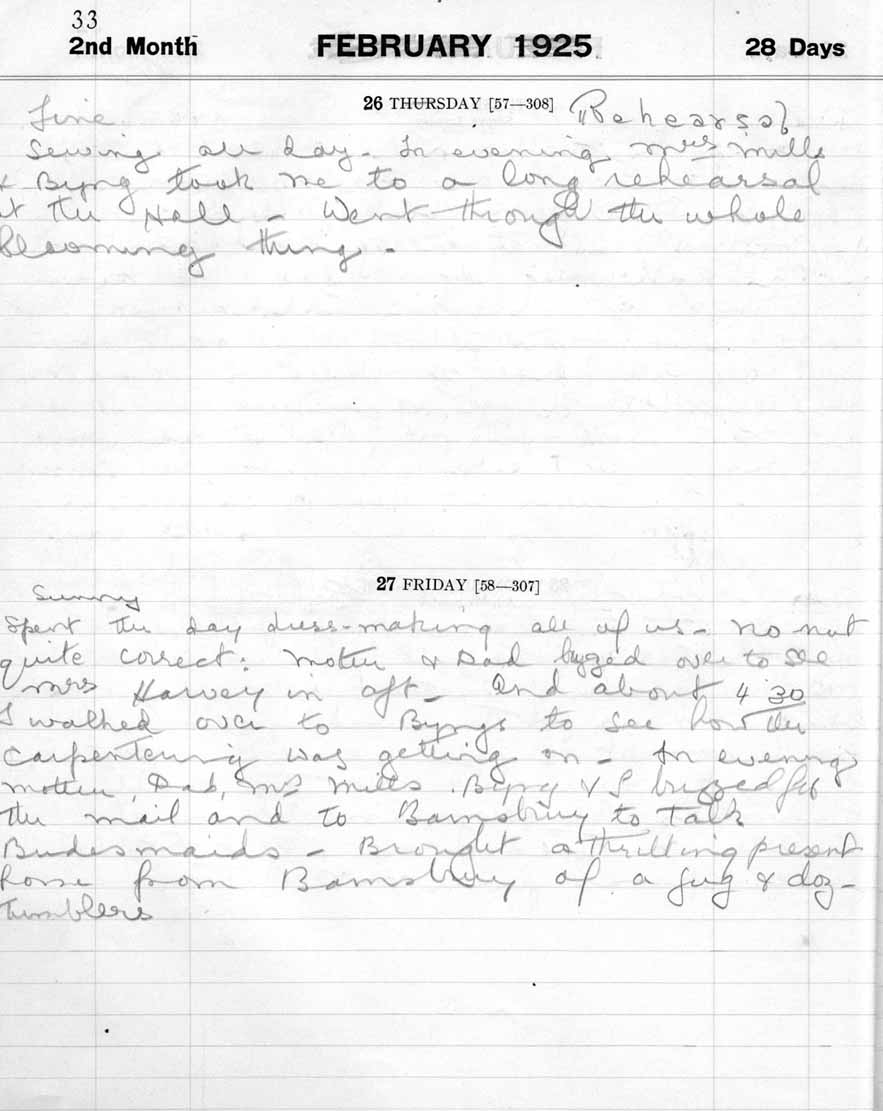 33
2nd Month FEBRUARY 1925 28 Days
26 THURSDAY [57—308] Rehearsal
Fine
Sewing all day - In evening Mrs Mills
& Byng took me to a long rehearsal
at the Hall - Went through the whole
blooming thing -
27 FRIDAY [58—307]
Sunny
Spent the day dress-making all of us - No not
quite correct: Mother & Dad buzzed over to see
Mrs Harvey in aft - And about 4 30
I walked over to Byngs to see how the
carpentering was getting on - In evening
Mother, Dad, Mrs Mills, Byng & I buzzed for
the mail and to Barnsbury to talk
Bridesmaids - Brought a thrilling present
home from Barnsbury of a jug & doz -
tumblers